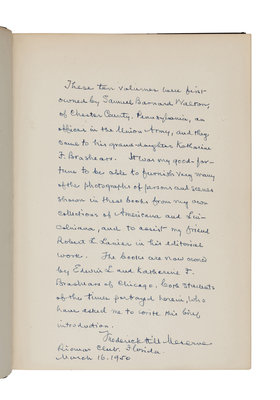 These ten volumes were first
owned by Samuel Barnard Walton,
of Chester County, Pennsylvania, an
officer in the Union Army, and they
come to his grand-daughter Katherine
F. Brashears. It was my good for-
tune to be able to furnish very many
of the photographs of persons and scenes
shown in these books from my own
collections of Americana and Lin-
colniana, and to assist my friend
Robert L. Lanier in his editorial
work. The books are now owned
by Edwin L. and Katherine F.
Brashears of Chicago, both students
of the times portrayed herein, who
have asked me to write this brief
introduction.
Frederick Hill Meserve
Riomar Club, Florida.
March 16, 1950